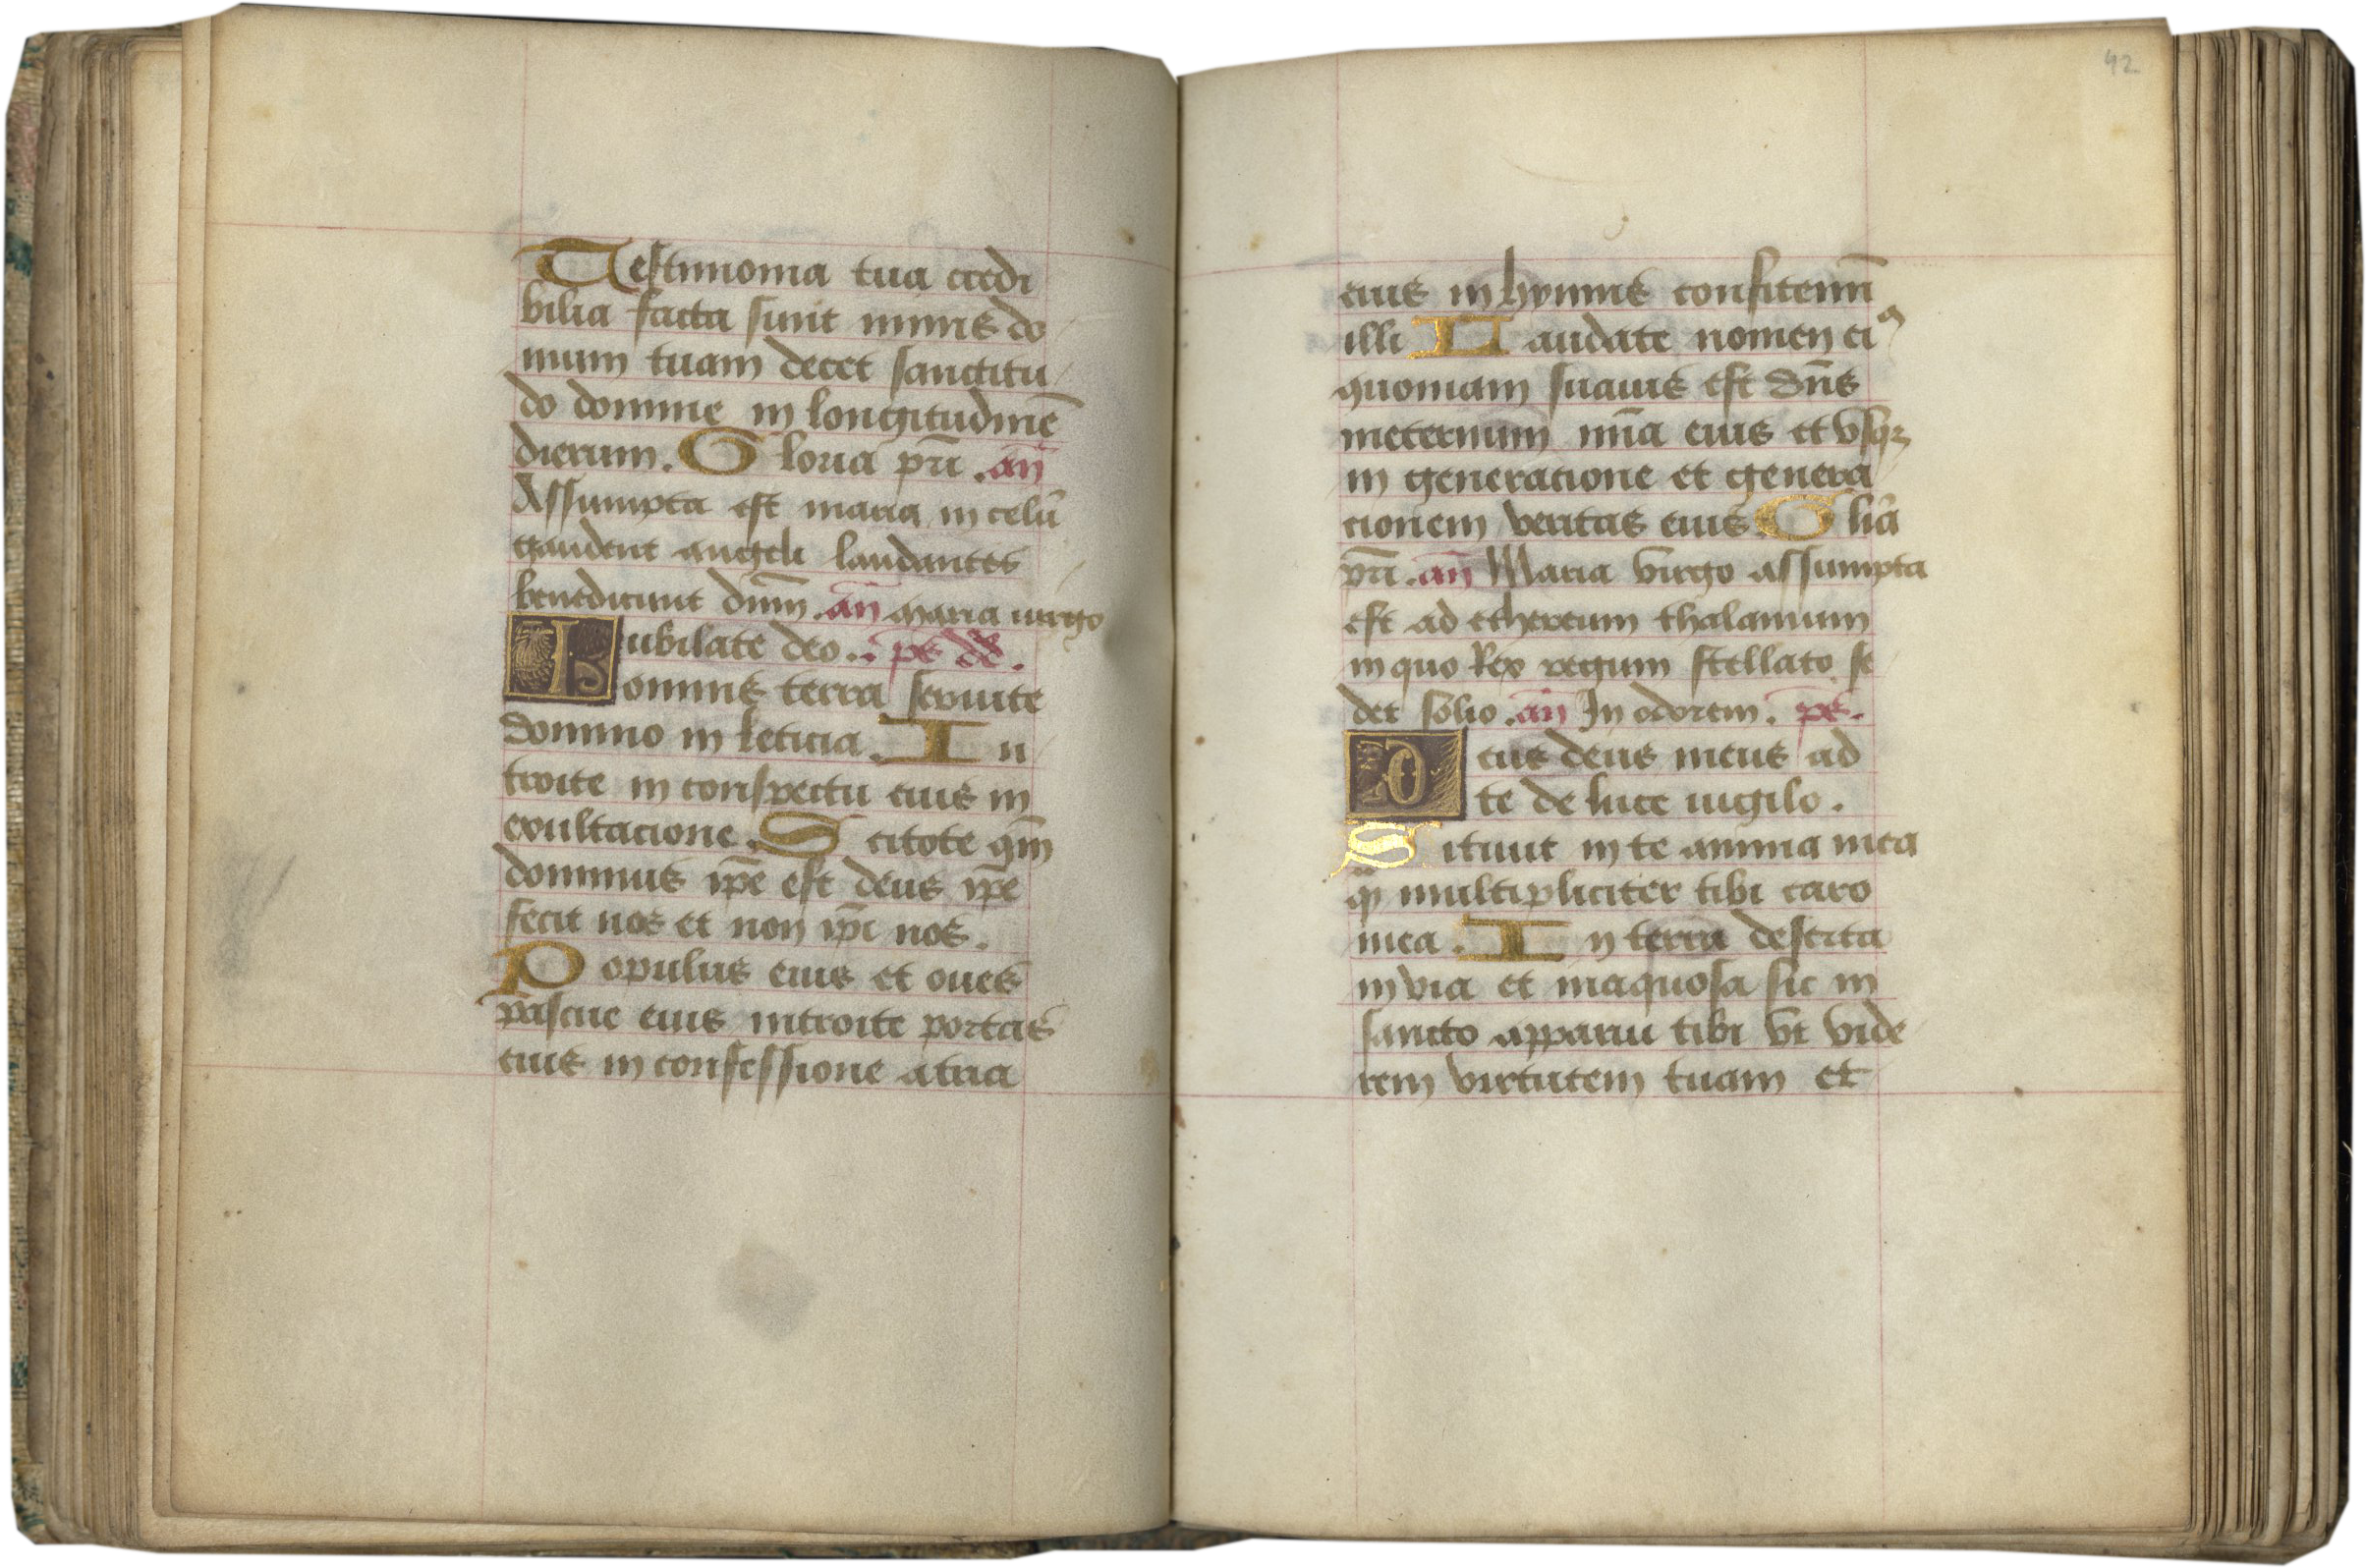 Testimonia tua credi
bilia facta sunt nimis do
mum tuam decet sanctitu
do domine in longitudinē
dierum. Gloria pr̄i. an̄
Assumpta est maria in celū
gaudent angeli laudantes
benedicunt dn̄m. an̄ maria uirgo
Iubilate deo. ps̄ dd̄.
omnis terra seruite
domino in leticia. In
troite in conspectu eius in
exultacione. Scitote qm̄
dominus ip̄e est deus ip̄e
fecit nos et non ip̄i nos.
Populus eius et oues
pascue eius introite portas
eius in confessione atria
42
eius in hymnis confitemī
illi Laudate nomen eiꝰ
quoniam suauis est dn̄s
ineternum mīa eius et vsqꝫ
in generatione et genera
cionem veritas eius Glīa
pr̄i. an̄ Maria virgo assumpta
est ad ethereum thalamum
in quo Rex regum stellato se
det solio. an̄ In odorem. ps̄.
Deus deus meus ad
te de luce uigilo.
Sitiuit in te anima mea
qᷓ multipliciter tibi caro
mea. In terra deserta
inuia et inaquosa sic in
sancto apparui tibi vt vide
rem virtutem tuam et